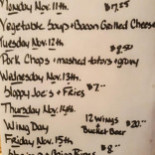 Monday Nov. 11th $7.55
Vegetable Soup + Bacon Grilled Cheese
Tuesday Nov. 12th $8.50
Pork Chops + mashed taters + gravy
Wednesday Nov. 13th $7.
Sloppy Joe's + Fries
Thursday Nov. 14th
Wing Day 12 Wings Bucket Beer $20.
Friday Nov. 15th $8.